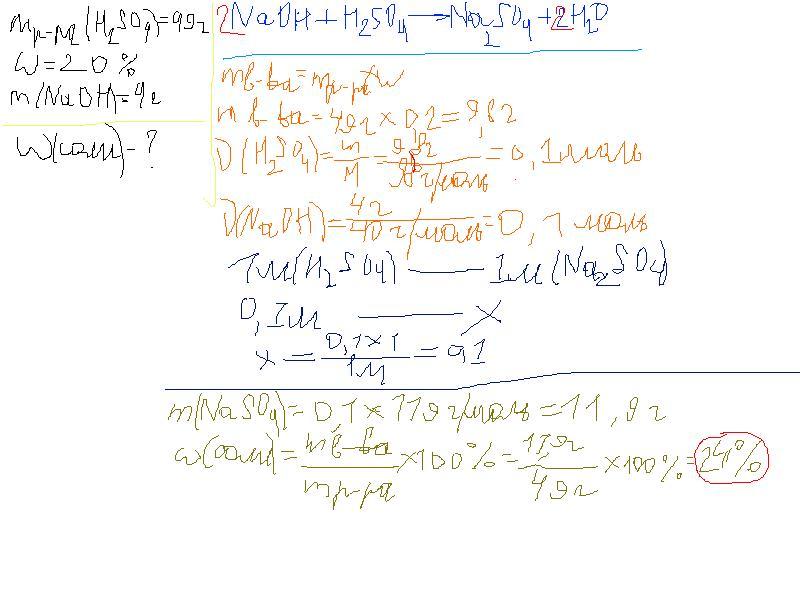 mр-ра(H2SO4)=49г
W=20%
m(NaOH)=4г
W(соли)-?
2NaOH+H2SO4—Na2SO4+2H2O
mв-ва=mр-ра×w
mв-ва=49г×0.2=9,8г
υ(H2SO4)=m/M=9,8г/98г/моль=0,1моль
υ(NaOH)=4г/40г/моль=0,1моль
1м(H2SO4)——1м(Na2SO4)
0,1м —— X
x=0,1×1/1м=0,1
m(NaSO4)=0,1×119г/моль=11,9г
w(соли)=mв-ва/mр-ра×100%=11,9г/49г×100%=24%